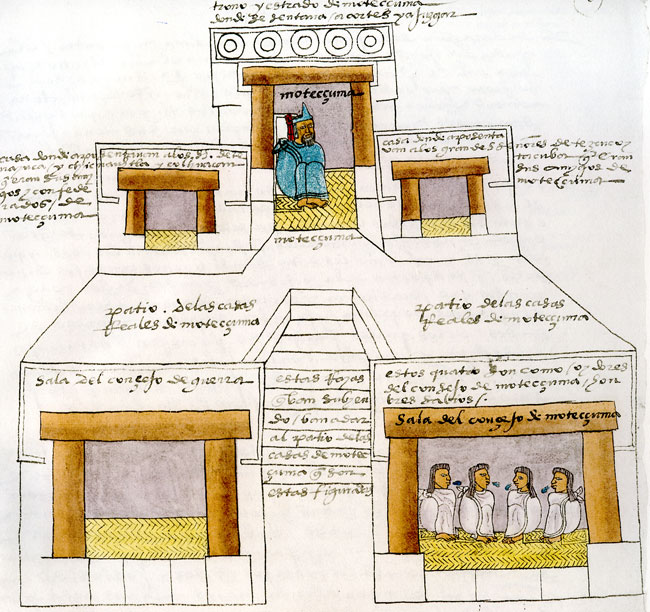 trono y estrado de motecçuma
donde se sentava a cortes y a juzgar
motecçuma
casa donde aposentavan a los s. de te
nayuca y chicnauhtla y colhuacan
q eran sus ami
gos y confede
rados / de
motecçuma
casa donde aposenta
van a los grandes señores de tezcuco y
tacuba q eran
sus amigos de
motecçuma
motecçuma
patio . de las casas
reales de motecçuma
patio de las casas
reales de motecçuma
sala del consejo de guerra
estas rayas
q van subien
do / van a dar
al patio de las
casas de motec
çuma q son
estas figuradas
estos quatro son como / oydores
del consejo de motecçuma / hon
bres sabios /.
sala del consejo de motecçuma